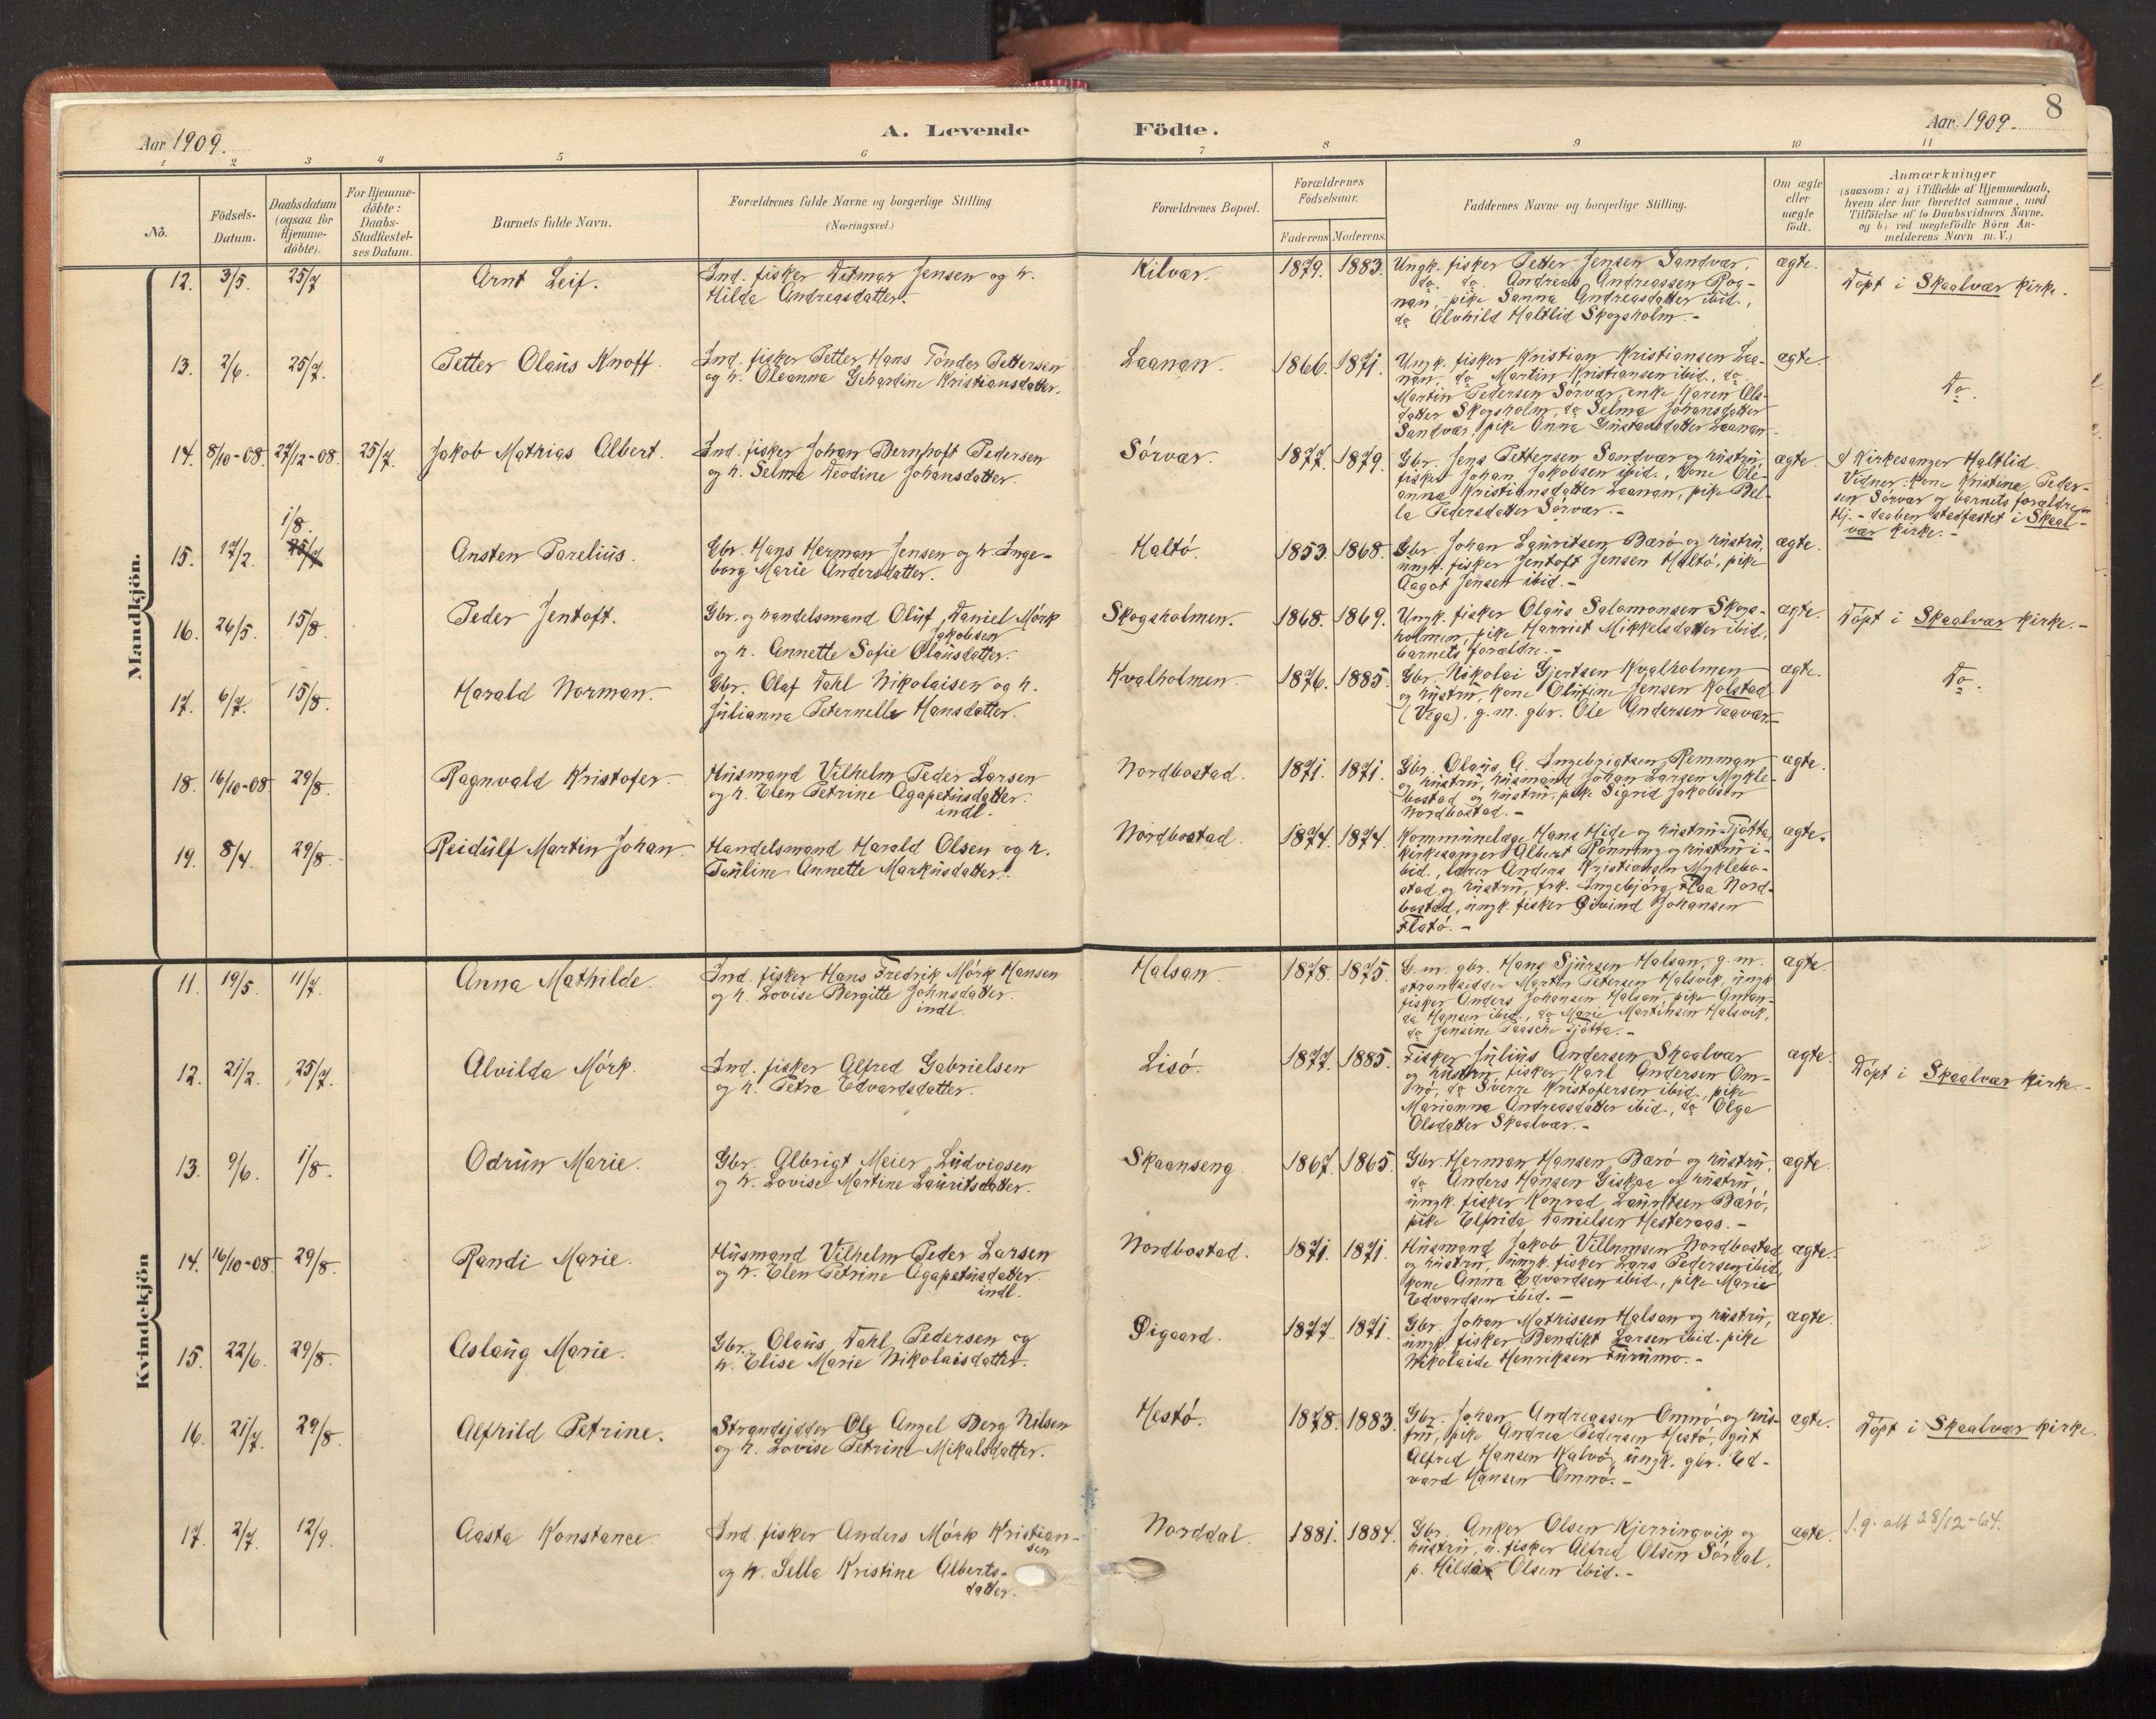 8
Aar 1909.
A. Levende Födte.
Aar 1909.
1 2 3 4 5 6 7 8 9 10 11
No.
Födsels-
Datum.
Daabsdatum
(ogsaa for
Hjemme-
döbte).
For Hjemme-
döbte:
Daabs-
Stadfæstel-
ses Datum.
Barnets fulde Navn.
Forældrenes fulde Navne og borgerlige Stilling
(Næringsvei.)
Forældrenes Bopæl.
Forældrenes
Födselsaar.
Faderens Moderens.
Faddernes Navne og borgerlige Stilling.
Om ægte
eller
uægte
födt.
Anmærkninger
(saasom: a) i Tilfælde af Hjemmedaab,
hvem der har forrettet samme, med
Tilföielse af to Daabsvidners Navne.
og b) ved uægtefödte Börn An-
melderens Navn m. V.)
Mandkjön.
12. 3/5. 25/7
Arnt Leif.
Ind. fisker Ditmar Jensen og h.
Hilda Andreasdatter.
Kilvær. 1879. 1883.
Ungk. fisker Petter Jensen Sandvær,
do. do. Andreas Andreassen Rog-
nan, pike Sanna Andreasdatter ibid.,
do Alvhild Haltlid Skogsholm.-
ægte.
Döpt i Skaalvær kirke.
13. 2/6. 25/7.
Petter Olaus Knoff.
Ind. fisker Petter Hans Tönder Pettersen
og h. Oleanna Gehardine Kristiansdatter.
Laanan. 1866. 1871.
Ungk. fisker Kristian Kristiansen Laa-
nan, do Martin Kristiansen ibid., do
Martin Pedersen Sörvær, enke Karen Ols-
datter Skogsholm, do Selma Johansdatter
Sandvær, pike Anna Gustavsdatter Laanan.
ægte.
Do.
14. 8/10-08. 27/12-08. 25/7.
Jakob Mathias Albert.
Ind. fisker Johan Bernhoft Pedersen
og h. Selma Deodine Johansdatter.
Sörvær. 1877. 1879.
Gbr. Jens Pettersen Sandvær og hustru,
fisker Johan Jakobsen ibid., kone Ole-
anna Kristiansdatter Laanan, pike Bel-
la Pedersdatter Sörvær.-
ægte.
Kirkesanger Haltlid.
Vidner: kone Kristine Peder-
sen Sörvær og barnets forældre.
Hj.-daaben stadfæstet i Skaal-
vær kirke.-
15. 17/2. 1/8. 25/7
Ansten Parelius.
Gbr. Hans Herman Jensen og h. Inge-
borg Marie Andersdatter.
Haltö. 1853. 1868.
Gbr. Johan Lauritsen Bærö og hustru,
ungk. fisker Jentoft Jensen Haltö, pike
Aagot Jensen ibid.-
ægte.
16. 26/5. 15/8.
Peder Jentoft.
Gbr. og handelsmand Oluf Daniel Mörk
Jakobsen
og h. Annette Sofie Olausdatter.
Skogsholmen. 1868. 1869.
Ungk. fisker Olaus Salomonsen Skogs-
holmen, pike Harriet Mikkelsdatter ibid,
barnets forældre.-
ægte.
Döpt i Skaalvær kirke.-
17. 6/7. 15/8.
Harald Norman.
Gbr. Olaf Dahl Nikolaisen og h.
Julianna Peternelle Hansdatter.
Kvalholmen. 1876. 1885.
Gbr. Nikolai Gjertsen Kvalholmen
og hustru, kone Olufine Jensen Kolstad
(Vega), g.m. gbr. Ole Andersen
ægte.
Do.
18. 16/10-08. 29/8.
Ragnvald Kristofer.
Husmand Vilhelm Peder Larsen
og h. Elen Petrine Agapetusdatter.
indl.
Nordbostad. 1871. 1871.
Gbr. Olaus A. Ingebrigtsen Remman
og hustru, husmand Johan Larsen Mykle-
bostad og hustru, pike Sigrid Jakobsen
Nordbostad.-
ægte.
19. 8/4. 29/8.
Reidulf Martin Johan.
Handelsmand Harald Olsen og h.
Pauline Annette Markusdatter.
Nordbostad. 1874. 1874.
Kommunelæge Hans Hide og hustru Tjötta,
kirkesanger Albert Rönning og hustru i-
bid., lærer Anders Kristiansen Myklebo-
stad og hustru, frk. Ingebjörg Flaa Nord-
bostad, ungk. fisker Øivind Johansen
Flatö.-
ægte.
Kvindekjön
11. 19/5. 11/7.
Anna Mathilde.
Ind. fisker Hans Fredrik Mörk Hansen
og h. Lovise Bergitte Johnsdatter.
indl.
Halsan. 1878. 1875.
G.m. gbr. Hans Sjursen Halsan, g.m.
strandsidder Martin Petersen Halsvik, ungk.
fisker Anders Johansen Halsan, pike Aman-
da Hansen ibid., do Marie Martinsen Halsvik,
do Jensine Paasche Tjötta.-
ægte.
12. 21/2. 25/7.
Alvilda Mörk.
Ind. fisker Alfred Gabrielsen
og h. Petra Edvardsdatter.
Lisö. 1877. 1885.
Fisker Julius Andersen Skaalvær
og hustru, fisker Karl Andersen Om-
nö, do Sverre Kristofersen ibid., pike
Marianna Andreasdatter ibid., do Olga
Olsdatter Skaalvær.-
ægte.
Döpt i Skaalvær kirke.-
13. 9/6. 1/8.
Odrun Marie.
Gbr. Albrigt Meier Ludvigsen
og h. Lovise Martine Lauritsdatter.
Skaanseng. 1867. 1865.
Gbr. Herman Hansen Bærö og hustru,
do Anders Hansen Giskaa og hustru,
ungk. fisker Konrad Lauritsen Bærö,
pike Elfrida Danielsen Hesteraas.-
ægte.
14. 16/10-08. 29/8.
Randi Marie.
Husmand Vilhelm Peder Larsen
og h. Elen Petrine Agapetusdatter.
indl.
Nordbostad. 1871. 1871.
Husmand Jakob Villumsen Nordbostad
og hustru, ungk. fisker Lars Pedersen ibid,
kone Anna Edvardsen ibid., pike Marie
Edvardsen ibid.-
ægte.
15. 22/6. 29/8.
Aslaug Marie.
Gbr. Olaus Dahl Pedersen og
h. Elise Marie Nikolaisdatter.
Øigaard. 1877. 1871.
Gbr. Johan Mathissen Halsan og hustru,
ungk. fisker Bendikt Larsen ibid. pike
Nikolaide Henriksen Furumo.-
ægte.
16. 21/7. 29/8.
Alfhild Petrine.
Strandsidder Ole Angel Berg Nilsen
og h. Lovise Petrine Mikalsdatter.
Hestö. 1878. 1883.
Gbr. Johan Andreassen Omnö og hus-
tru, pike Andrea Pedersen Hestö, gut
Alfred Hansen Kalvö, ungk. gbr. Ed-
vard Hansen Omnö.-
ægte.
Döpt i Skaalvær kirke.
17. 2/7. 12/9.
Aasta Konstance.
Ind. fisker Anders Mörk Kristian-
sen
og h. Sella Kristine Alberts-
datter.
Norddal. 1881. 1884.
Gbr. Anker Olsen Kjerringvik og
hustru, u. fisker Alfred Olsen Sördal,
p. Hilda Olsen ibid.-
ægte.
f.g. alt 28/12-64.